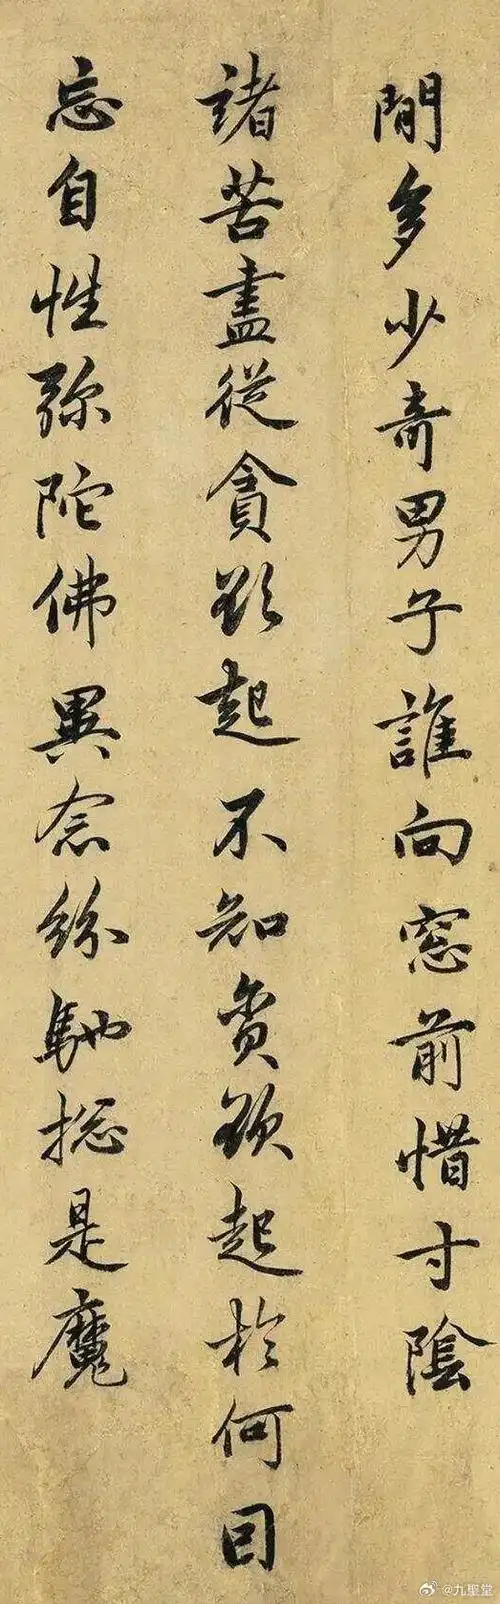 間多少奇男子誰向窓前惜寸陰
諸苦盡從貪欲起不知貪欲起於何因
忘自性弥陀佛異念紛馳捴是魔
@九聖堂